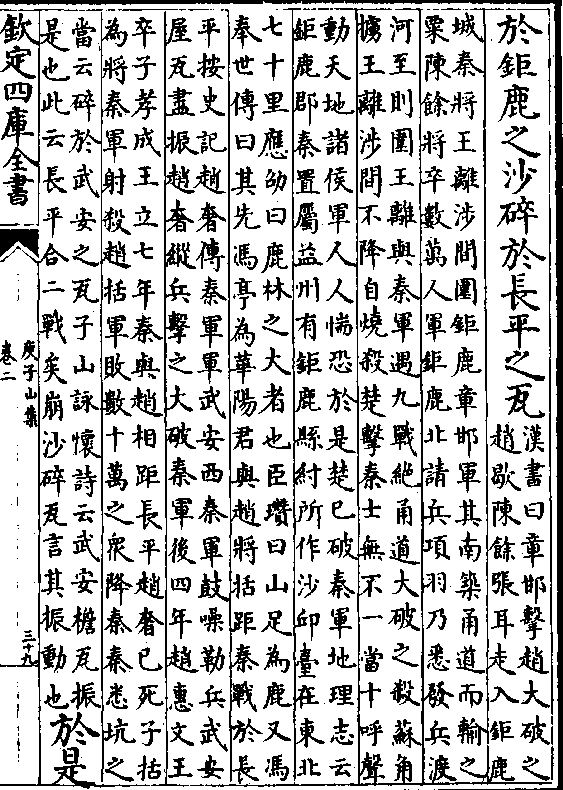 於鉅鹿之沙碎於長平之瓦
漢書曰章邯擊趙大破之
趙歇陳餘張耳走入鉅鹿
城秦將王離涉間圍鉅鹿章邯軍其南築甬道而輸之
粟陳餘將卒數萬人軍鉅鹿北請兵項羽乃悉發兵渡
河至則圍王離與秦軍遇九戰絶甬道大破之殺蘇角
擄王離涉間不降自燒殺楚擊秦士無不一當十呼聲
動天地諸侯軍人人惴恐於是楚已破秦軍地理志云
鉅鹿郡秦置屬益州有鉅鹿縣紂所作沙邱臺在東北
七十里應劭曰鹿林之大者也臣瓚曰山足為鹿又馮
奉世傳曰其先馮亭為華陽君與趙將括距秦戰於長
平按史記趙奢傳秦軍軍武安西秦軍鼓噪勒兵武安
屋瓦盡振趙奢縱兵擊之大破秦軍後四年趙惠文王
卒子孝成王立七年秦與趙相距長平趙奢已死子括
為將秦軍射殺趙括軍敗數十萬之衆降秦秦悉坑之
當云碎於武安之瓦子山詠懷詩云武安檐瓦振
是也此云長平合二戰矣崩沙碎瓦言其振動也
於是
欽定四庫全書
庾子山集
卷二
三十九